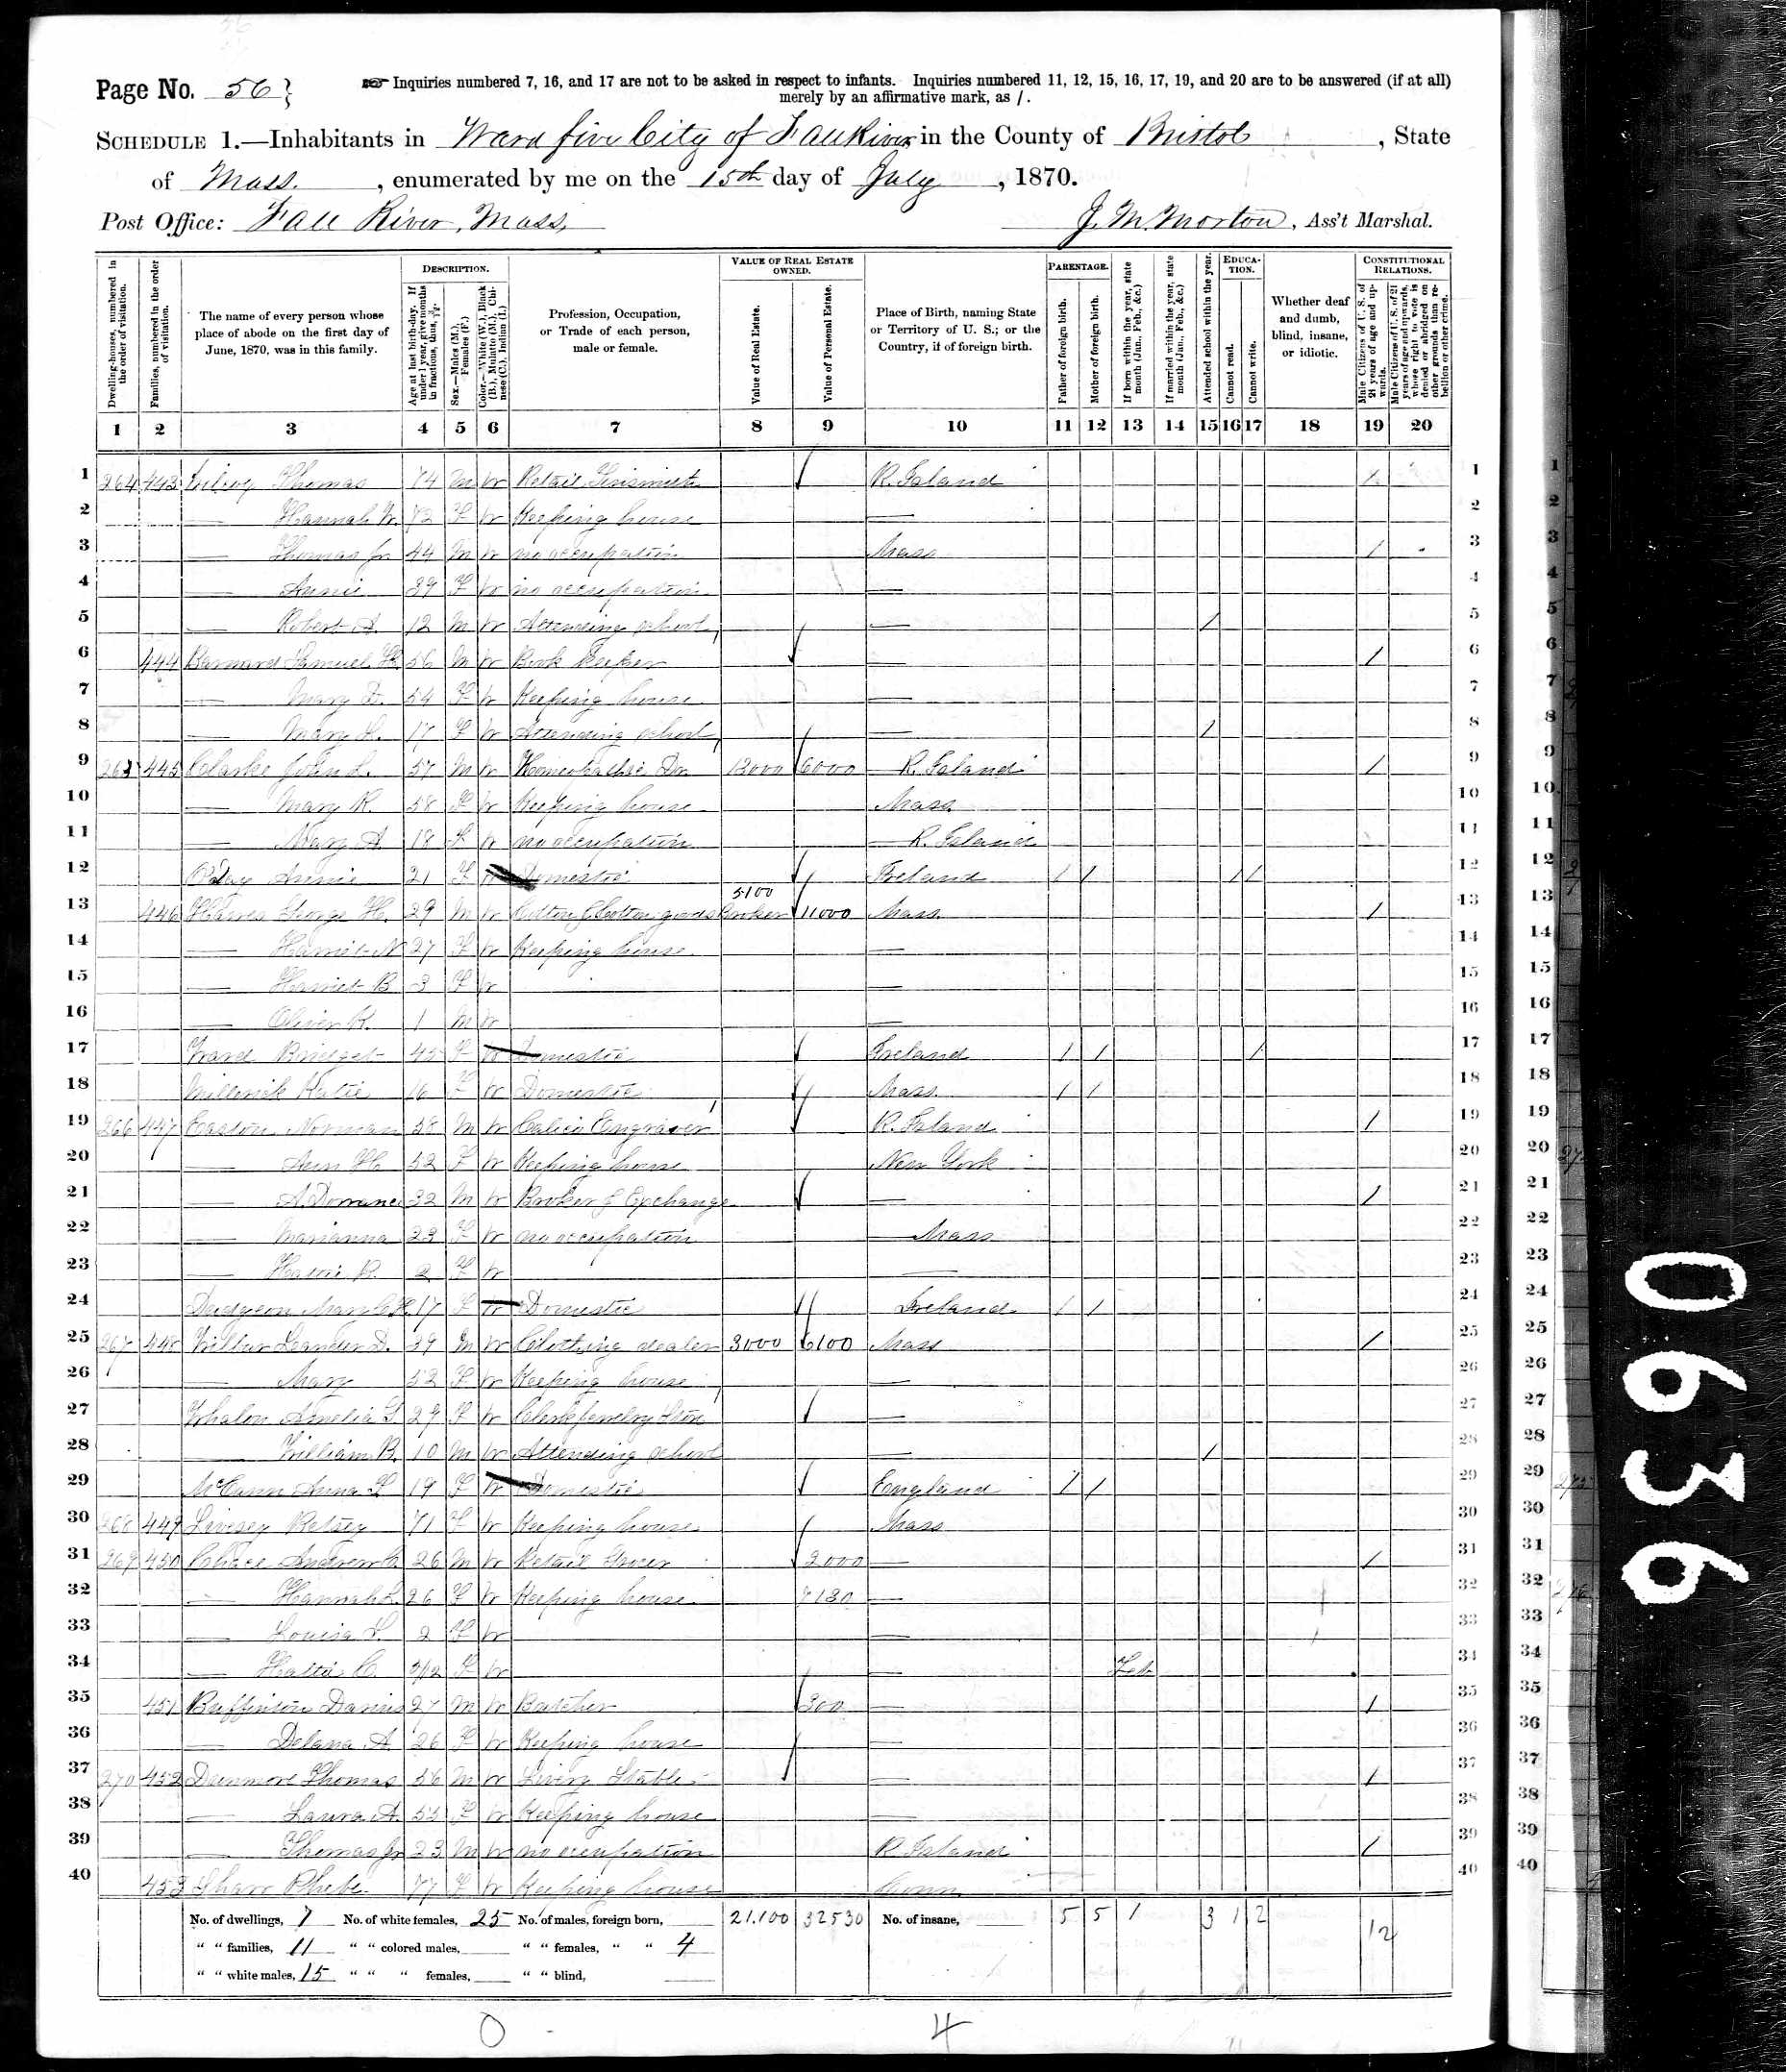 Page No. 56
Inquiries numbered 7, 16, and 17 are not to be asked in respect to infants. Inquiries numbered 11, 12, 15, 16, 17, 19, and 20 are to be answered (if at all)
merely by an affirmative mark, as /.
SCHEDULE 1.—Inhabitants in Ward five City of Fall River in the County of Bristol, State
of Mass., enumerated by me on the 15th day of July, 1870.
Post Office: Fall River, Mass. J. M. Morton, Ass't Marshal.
Dwelling-houses, numbered in the order of visitation.
Families, numbered in the order of visitation.
The name of every person whose place of abode on the first day of June, 1870, was in this family.
DESCRIPTION.
Age at last birth-day. If under 1 year, give months in fractions, thus, 3/12
Sex.—Males (M.), Females (F.)
Color.—White (W.), Black (B.), Mulatto (M.), Chinese (C.), Indian (I.)
Profession, Occupation, or Trade of each person, male or female.
VALUE OF REAL ESTATE OWNED.
Value of Real Estate.
Value of Personal Estate.
Place of Birth, naming State or Territory of U. S.; or the Country, if of foreign birth.
PARENTAGE.
Father of foreign birth.
Mother of foreign birth.
If born within the year, state month (Jan., Feb., &c.)
If married within the year, state month (Jan., Feb., &c.)
Attended school within the year.
EDUCATION.
Cannot read.
Cannot write.
Whether deaf and dumb, blind, insane, or idiotic.
CONSTITUTIONAL RELATIONS.
Male Citizens of U. S. of 21 years of age and upwards.
Male Citizens of U. S. of 21 years of age and upwards, whose right to vote is denied or abridged on other grounds than rebellion or other crime.
1 2 3 4 5 6 7 8 9 10 11 12 13 14 15 16 17 18 19 20
1 264 443 Thomas 74 M W Retail R. Island / 1
2 — Hannah W. 72 F W Keeping house — 2
3 — Thomas Jr 44 M W no occupation Mass / 3
4 — Annie 39 F W no occupation — 4
5 — Robert A. 12 M W Attending school — / 5
6 444 Barnard Samuel H. 56 M W Book Keeper — / 6
7 — Mary 54 F W Keeping house — 7
8 — Mary 17 F W Attending school — / 8
9 265 445 Clarke John L. 57 M W Homeopathic Dr. 12000 6000 — R. Island / 9
10 — Mary R. 58 F W Keeping house Mass. 10
11 — Mary A 18 F W no occupation — R. Island 11
12 Annie 21 F W Domestic Ireland / / / / 12
13 446 Hawes George H. 29 M W Cotton & Cotton goods Broker 5100 11000 Mass / 13
14 — Harriet N 27 F W Keeping house — 14
15 — Harriet B 3 F W — 15
16 — Oliver K. 1 M W — 16
17 Ward Bridget 45 F W Domestic Ireland / / / 17
18 Katie 16 F W Domestic Mass. / / 18
19 266 447 Easton Norman 58 M W Calico Engraver R. Island / 19
20 — Ann H 52 F W Keeping house New York 20
21 — A. Dorrance 32 M W Broker of Exchange — / 21
22 — Marianna 23 F W no occupation — Mass 22
23 — Hattie R. 2 F W — 23
24 Dudgeon Mary 17 F W Domestic Ireland / / 24
25 267 448 Wilbur Leander D. 39 M W Clothing dealer 3000 6100 Mass / 25
26 — Mary 52 F W Keeping house — 26
27 Whalon Amelia 29 F W Clerk Jewelry Store — 27
28 — William B. 10 M W Attending school — / 28
29 McCann Anna 19 F W Domestic England / / 29
30 268 449 Livsey Betsey 71 F W Keeping house Mass 30
31 269 450 Chace Andrew 26 M W Retail Grocer 2000 — / 31
32 — Hannah L. 26 F W Keeping house 7130 — 32
33 — Louisa 2 F W — 33
34 — Hattie C. 5/12 F W — Feb 34
35 451 Buffinton Darius 27 M W Butcher 300 — / 35
36 — Delana A. 26 F W Keeping house — 36
37 270 452 Dunmore Thomas 56 M W Livery Stable — / 37
38 — Laura A. 55 F W Keeping house — 38
39 — Thomas Jr 23 M W no occupation R. Island / 39
40 453 Phebe 77 F W Keeping house Conn 40
No. of dwellings, 7 No. of white females, 25 No. of males, foreign born, 21.100 32530 No. of insane, 5 5 1 3 1 2 12
" " families, 11 " " colored males, " " females, " " 4
" " white males, 15 " " " females, " " blind,
0 4
0636